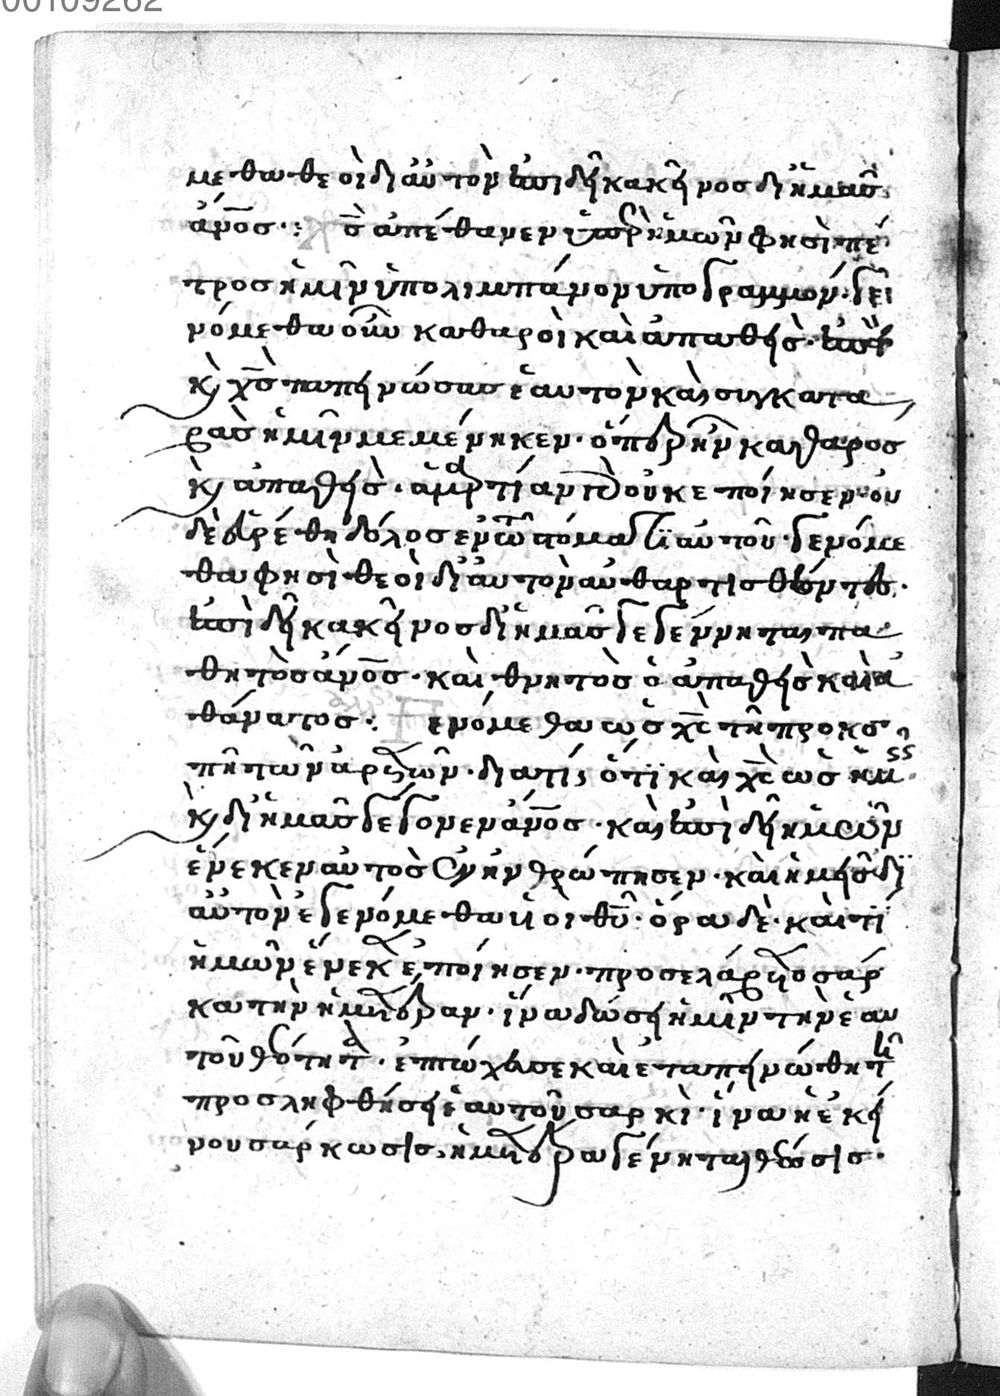 00109262
μεθα θεοὶ δι αὐτὸν ἐπειδὴ κἀκεῖνος δι ἡμᾶς
ἄνος·: χς ἀπέθανεν ὑπὲρ ἡμῶν φησὶ πέ
τρος ἡμῖν ὑπολιμπάνον ὑπογραμμόν· γει
νόμεθα οὖν καθαροὶ καὶ ἀπαθεῖς· ἐπεὶ
κ χς ταπεινώσας ἑαυτὸν καὶ συγκατα
βὰς ἡμῖν μεμένηκεν· ὅπερ ἦν καθαρος
κ ἀπαθὴς· ἁμαρτίαν γὰρ οὐκ ἐποίησεν οὐ
δὲ εὑρέθη δόλος ἐν τῶ στόματι αὐτοῦ· γενόμε
θα φησὶ θεοὶ δι αὐτὸν
ἐπειδὴ κἀκεῖνος δι ἡμᾶς γεγέννηται πα
θητὸς ἄνος· καὶ θνητὸς ὁ ἀπαθὴς καὶ ἀ
θάνατος: ενόμεθα ὡς χς τῆ προκο
πῆ τῶν ἀρετῶν· διατί; ὅτι καὶ χς ὡς ἡμεῖς·
κ δι ἡμᾶς γέγονεν ἄνος· καὶ ἐπειδὴ ἡμῶν
ἕνεκεν αὐτὸς ἐνηνθρώπησεν· καὶ ἡμεῖς δι
αὐτὸν γενόμεθα υἱοὶ θυ· ὅρα δὲ καὶ τί
ἡμῶν ἕνεκεν ἐποίησεν· προσελάβετο σάρ
κα τὴν ἡμετέραν· ἵνα δώσει ἡμῖν τὴν ἑαυ
τοῦ θεότητα· ἐπτώχευσε καὶ ἐταπεινώθη τῆ
προσληφθείσει ἑαυτοῦ σαρκὶ· ἵνα ἡ ἐκεί
νου σάρκωσις, ἡμετέρα γένηται θέωσις·